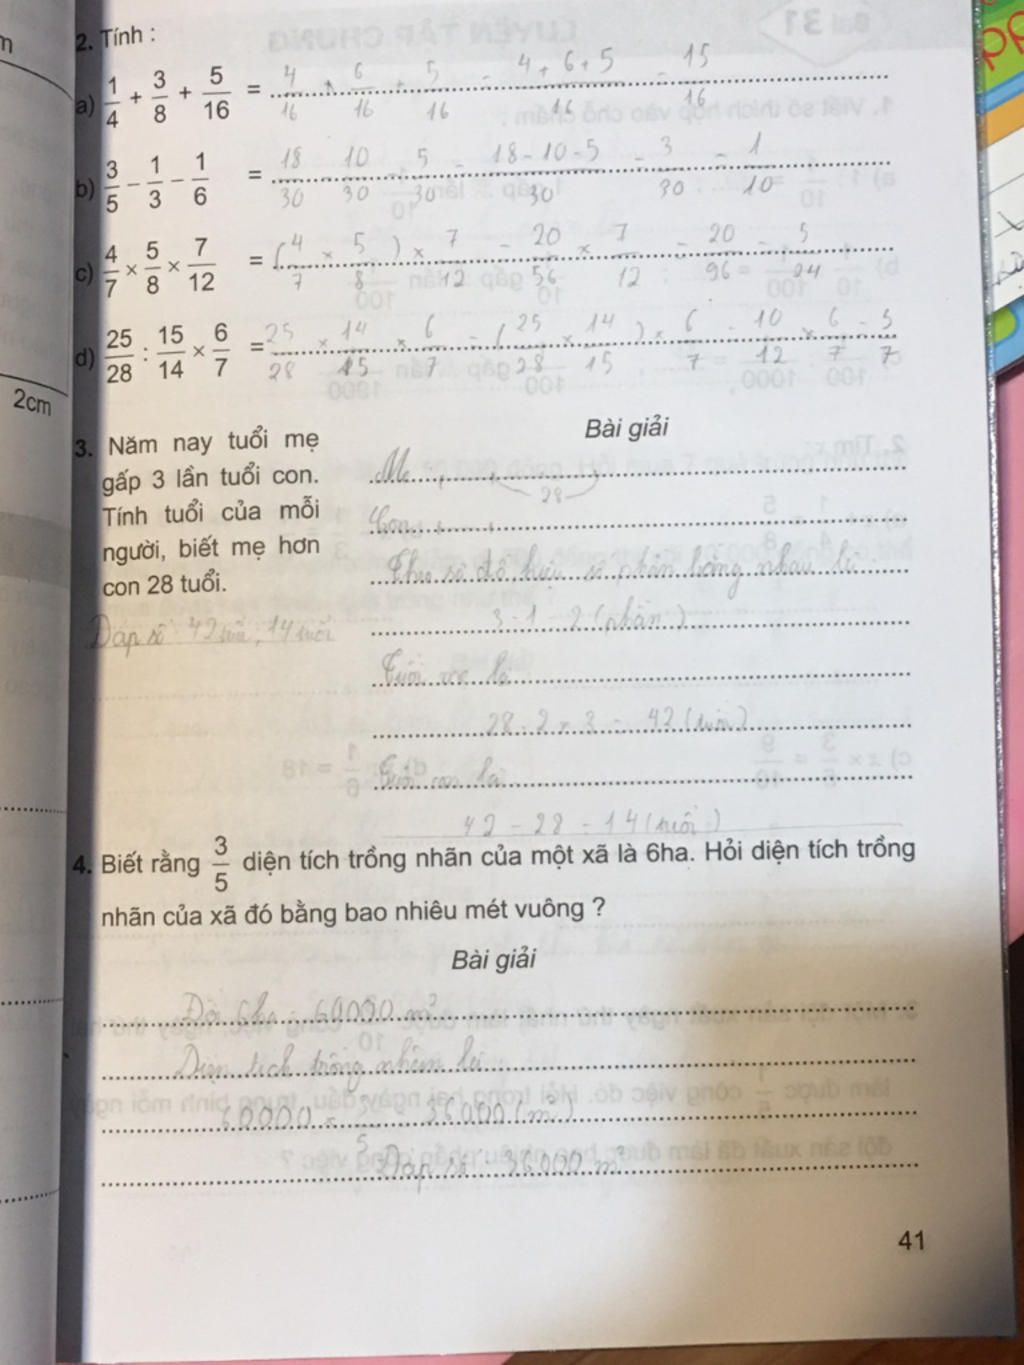 2. Tính :
a) 1/4 + 3/8 + 5/16 = 4/16 + 6/16 + 5/16 = 4 + 6 + 5/16 = 15/16
b) 3/5 - 1/3 - 1/6 = 18/30 - 10/30 - 5/30 = 18 - 10 - 5/30 = 3/30 = 1/10
c) 4/7 × 5/8 × 7/12 = (4/7 × 5/8) × 7/12 = 20/56 × 7/12 = 20/96 = 5/24
d) 25/28 : 15/14 × 6/7 = 25/28 × 14/15 × 6/7 = (25/28 × 14/15) × 6/7 = 10/12 × 6/7 = 5/7
2cm
3. Năm nay tuổi mẹ
gấp 3 lần tuổi con.
Tính tuổi của mỗi
người, biết mẹ hơn
con 28 tuổi.
Đáp số : 42 tuổi ; 14 tuổi
Bài giải
Mẹ
28
Con
Theo sơ đồ, hiệu số phần bằng nhau là
3 - 1 = 2 (phần)
Tuổi mẹ là
28 : 2 × 3 = 42 (tuổi)
Tuổi con là
42 - 28 = 14 (tuổi)
4. Biết rằng 3/5 diện tích trồng nhãn của một xã là 6ha. Hỏi diện tích trồng
nhãn của xã đó bằng bao nhiêu mét vuông ?
Bài giải
Đổi 6ha = 60000 m²
Diện tích trồng nhãn là
60000 × 3/5 = 36000 (m²)
Đáp số : 36000 m²
41